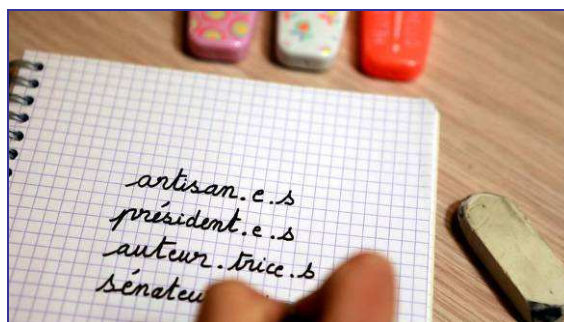 artisan.e.s
président.e.s
auteur.trice.s
sénateu